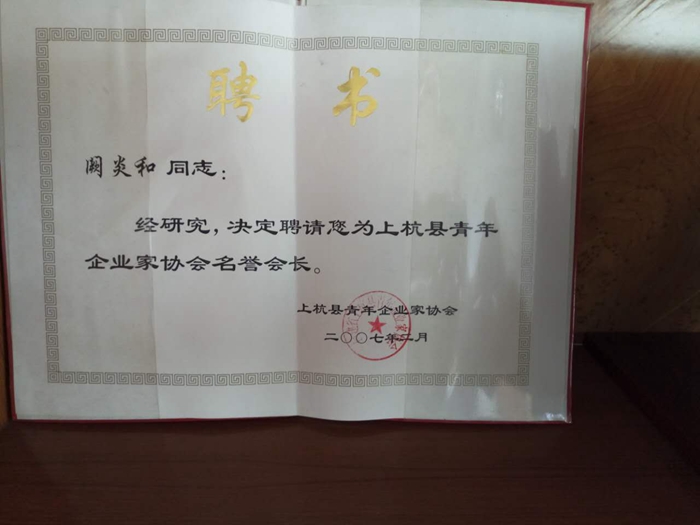 聘 书
阙炎和 同志：
经研究，决定聘请您为上杭县青年
企业家协会名誉会长。
上杭县青年企业家协会
二〇〇七年二月